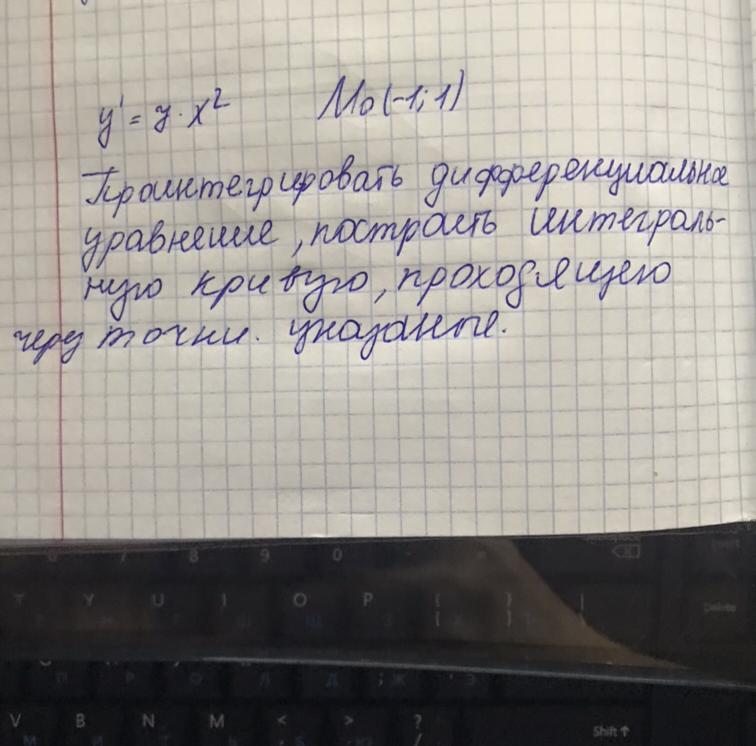 y' = y · x² M₀(-1; 1)
Проинтегрировать дифференциальное
уравнение, построить интеграль-
ную кривую, проходящею
через точки. указаные.
6 7 8 9 0 - =
T Y U I O P { [ } ] |
Delete
V B N M < > ? /
Shift ↑